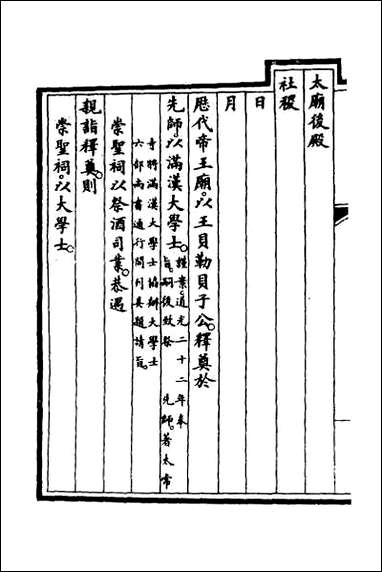 太廟後殿
社稷
日
月
厯代帝王廟。以王貝勒貝子公。釋奠於
先師。以滿漢大學士。謹案。道光二十二年奉
旨。嗣後致祭 先師。著太常
寺將滿漢大學士協辦大學士
六部尚書通行開列具題請旨。
崇聖祠以祭酒司業。恭遇
親詣釋奠。則
崇聖祠。以大學士。